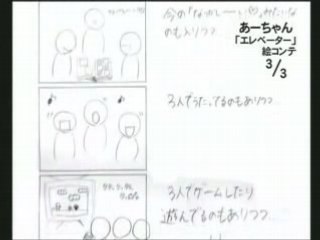 今の「なつかしーい♡」みたいな
のもありつつ
あーちゃん
「エレベーター」
絵コンテ
3/3
3人でうたってるのもありつつ
3人でゲームしたり
遊んでるのもありつつ